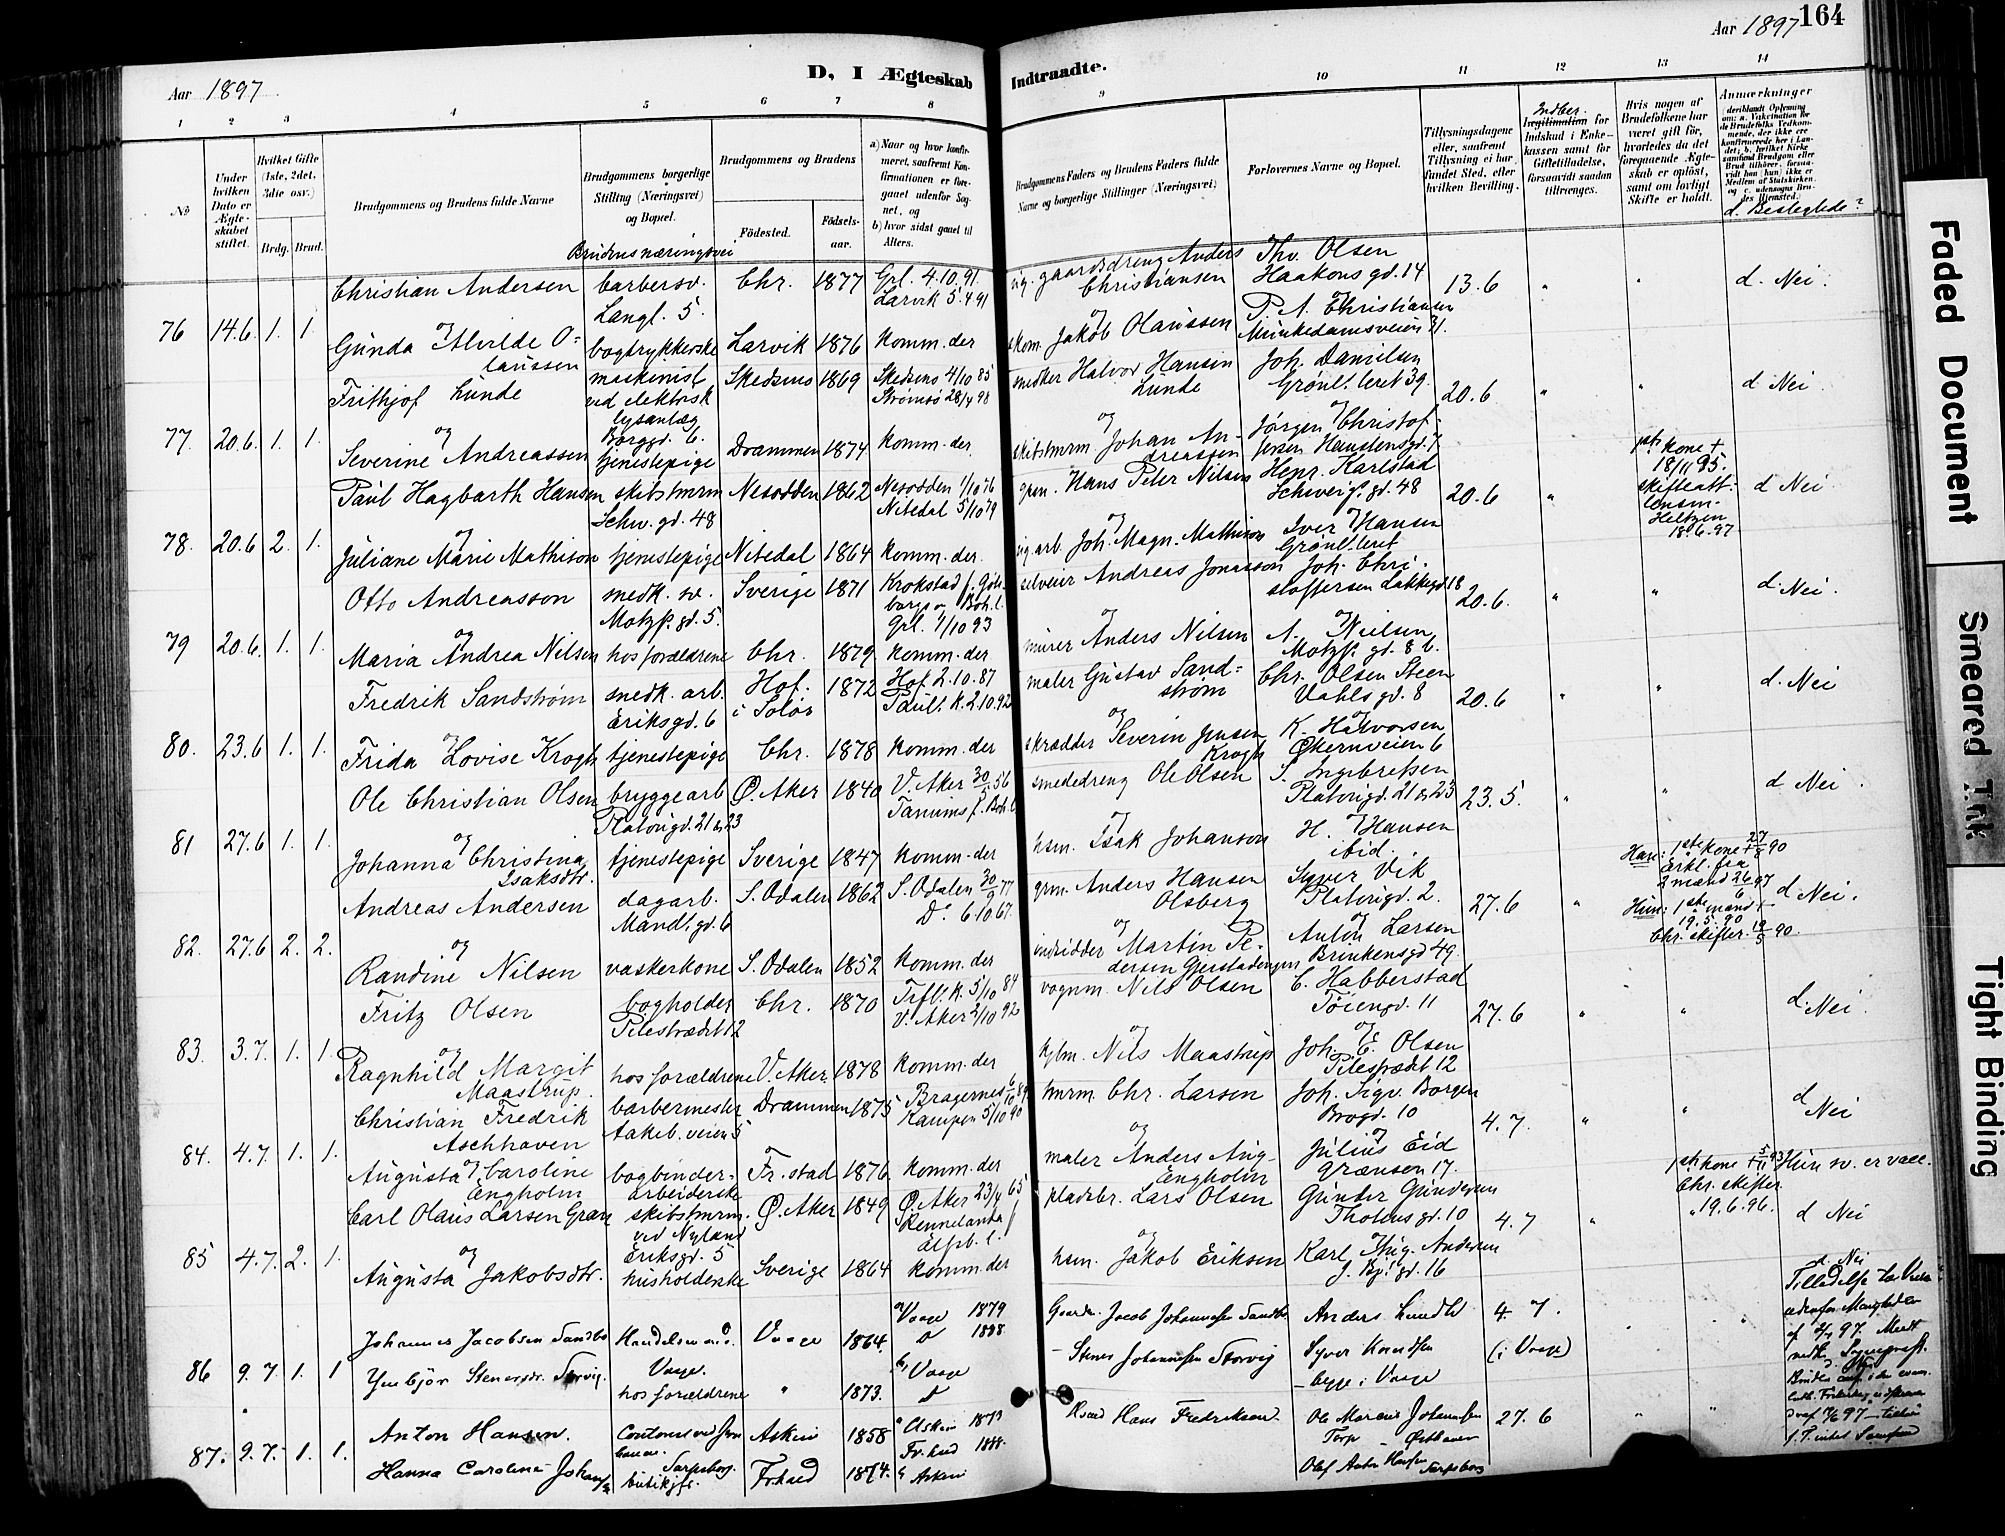 Aar 1897
D, I Ægteskab
Indtraadte.
Aar 1897
164
1 2 3 4 5 6 7 8
9 10 11 12 13 14
No
Under hvilken Dato er Ægteskabet stiftet.
Hvilket Gifte (1ste, 2det, 3die osv.)
Brdg. Brud.
Brudgommens og Brudens fulde Navne
Brudgommens borgerlige Stilling (Næringsvei) og Bopæl.
Brudens næringsvei
Brudgommens og Brudens
Fødested.
Fødselsaar.
a) Naar og hvor konfirmeret, saafremt Konfirmationen er foregaaet udenfor Sognet, og
b) hvor sidst gaaet til Alters.
Brudgommens Faders og Brudens Faders fulde Navne og borgerlige Stillinger (Næringsvei)
Forlovernes Navne og Bopæl.
Tillysningsdagene eller, saafremt Tillysning ei har fundet Sted, efter hvilken Bevilling.
Indber.
Legitimation for Indskud i Enkekassen samt for Giftetilladelse, forsaavidt saadan tiltrænges.
Hvis nogen af Brudefolkene har været gift før, hvorledes da det foregaaende Ægteskab er opløst, samt om lovligt Skifte er holdt.
Anmærkninger
d. Beslegtede?
76 14.6. 1. 1.
Christian Andersen barbersv. Langl. 5. Chr. 1877 Grl. 4.10.91. Larvik 5.4.91
og
Gunda Alvilde Olaussen bogtrykkerske Larvik 1876 komm. der
gaardsdreng Anders Christiansen Thv. Olsen Haakons gd. 14 13.6 " " d. Nei.
og
Jakob Olaussen P. A. Christiansen Munkedamsveien 31.
77. 20.6. 1. 1.
Frithjof Lunde maskinist ved elektrisk lysanlæg Borggd. 6. Skedsmo 1869 Skedsmo 4/10 85 Strømsø 28/4 98
og
Severine Andreassen tjenestepige Drammen 1874 komm. der
snedker Halvor Hansen Lunde Joh. Danielsen Grønl. leret 39. 20.6 " " d Nei
og
skibstmrm Johan Andreassen Jørgen Christofersen Hausmansgd. 7.
78. 20.6 2. 1.
Paul Hagbarth Hansen skibstmrm Schw. gd. 48 Nesodden 1862 Nesodden 1/10 76 Nitedal 5/10 79
og
Juliane Marie Mathison tjenestepige Nitedal 1864 komm. der.
Hans Peter Nilsen Henr. Karlstad Schweig. gd. 48 20.6 " 1ste kone + 18/11 95. skifteatt. 18.6.97. d Nei
og
Joh. Magn. Mathison Iver Hansen Grønl. leret
79 20.6. 1. 1.
Otto Andreasson snedk. sv. Motzf. gd. 5. Sverige 1871 Krokstad f. Göteborgs og Boh. l. Grl. 1/10 93
og
Maria Andrea Nilsen hos forældrene Chr. 1879 komm. der
Andreas Jonasson Joh. Christoffersen Lakkegd. 18 20.6. " " d. Nei.
og
murer Anders Nilsen A. Nielsen Motzf. gd. 8 b.
80. 23.6 1. 1.
Fredrik Sandstrøm snedk. arb. Eriksgd. 6 Hof. i Solør 1872 Hof 2.10.87 Paul. k. 2.10.92
og
Frida Lovise Krogh tjenestepige Chr. 1878 komm. der
maler Gustav Sandstrøm Chr. Olsen Steen Vahls gd. 8 20.6 " " d. Nei
og
skrædder Severin Jensen Krogh K. Halvorsen Økernveien 6
81 27.6 1. 1.
Ole Christian Olsen bryggearb Platougd. 21 & 23 Ø. Aker 1840 V. Aker 30/ 56 Tanums f. Boh. l.
og
Johanna Christina Isaksdtr. tjenestepige Sverige 1847 komm. der
smededreng Ole Olsen S. Ingebretsen Platougd. 21 & 23 23.5. " " d Nei.
og
hsm. Isak Johanson H. Hansen ibid.
82. 27.6 2. 2.
Andreas Andersen dagarb. Mandl. gd. 6 S. Odalen 1862 S. Odalen 30/9 77 Do. 6.10.67.
og
Randine Nilsen vaskerkone S. Odalen 1852 komm. der
grm. Anders Hansen Olsberg Syver Vik Platougd. 2. 27.6 " Han: 1ste kone + 27/8 90 Erkl. fra 2 mænd 26/6 97 Hun: 1ste mand + 19.5.90 Chr. skifter. d Nei.
og
indsidder Martin Pedersen Gjerstadengen Anton Larsen Brinkensgd 49.
83. 3.7. 1. 1.
Fritz Olsen bogholder Pilestrædet 12 Chr. 1870 Tref. k. 5/10 84 V. Aker 2/10 92
og
Ragnhild Margit Maastrup. hos forældrene V. Aker. 1878 komm. der
vognm. Nils Olsen C. Habberstad Tøiengd. 11 27.6 " " d. Nei.
og
Nils Maastrup Joh. E. Olsen Pilestrædt 12
84. 4.7. 1. 1.
Christian Fredrik Aschhaven barbermester Aakeb. veien 5 Drammen 1875 Bragernes 6/10 89. Kampen 5/10 90
og
Augusta Caroline Engholm bogbinderarbeiderske Fr. stad 1876 komm. der
tmrm. Chr. Larsen Joh. Sigv. Borgen Brogd. 10 4.7. " " d Nei
og
maler Anders Aug. Engholm Julius Eid Grænsen 17.
85 4.7. 2. 1.
Carl Olaus Larsen Gran skibstmrm. ved Nyland Eriksgd. 5 Ø. Aker 1849 Ø. Aker 23/4 65 Rennelanda f. Elfsb. l.
og
Augusta Jakobsdtr. husholderske Sverige 1864 komm. der
pladsbr. Lars Olsen Gunder Gundersen Tholens gd. 10 4.7 " 1ste kone + 5/11 93 Chr. skifter 19.6.96. Hun sv. er vacc. d Nei
og
hsm. Jakob Eriksen Karl Thig. Andersen J. Bj. gd. 16
86 9.7. 1. 1
Johannes Jacobsen Sandbo Handelsmand Vaage. Vaage 1864. a Vaage 1879 1888.
Stenersdr. Storvig. hos forældrene " 1873. Vaage
Gaardbr. Jacob Johannessen Sandbo Anders Lundh 4. 7. (i Vaage)
Stener Johannessen Storvig Syver Knudsen begge i Vaage
d. Nei
87. 9.7. 1. 1.
Anton Hansen. Sarpsborg. Askim 1858 Askim 1873 Fr.hald 1888.
Hanna Caroline butikjfr. Fr.hald 1874. Askim
Hans Fredriksen Ole Marcus Johannsen Torp 27. 6 " "
Olaf Anton Hansen Sarpsborg
Faded Document
Smeared Ink
Tight Binding